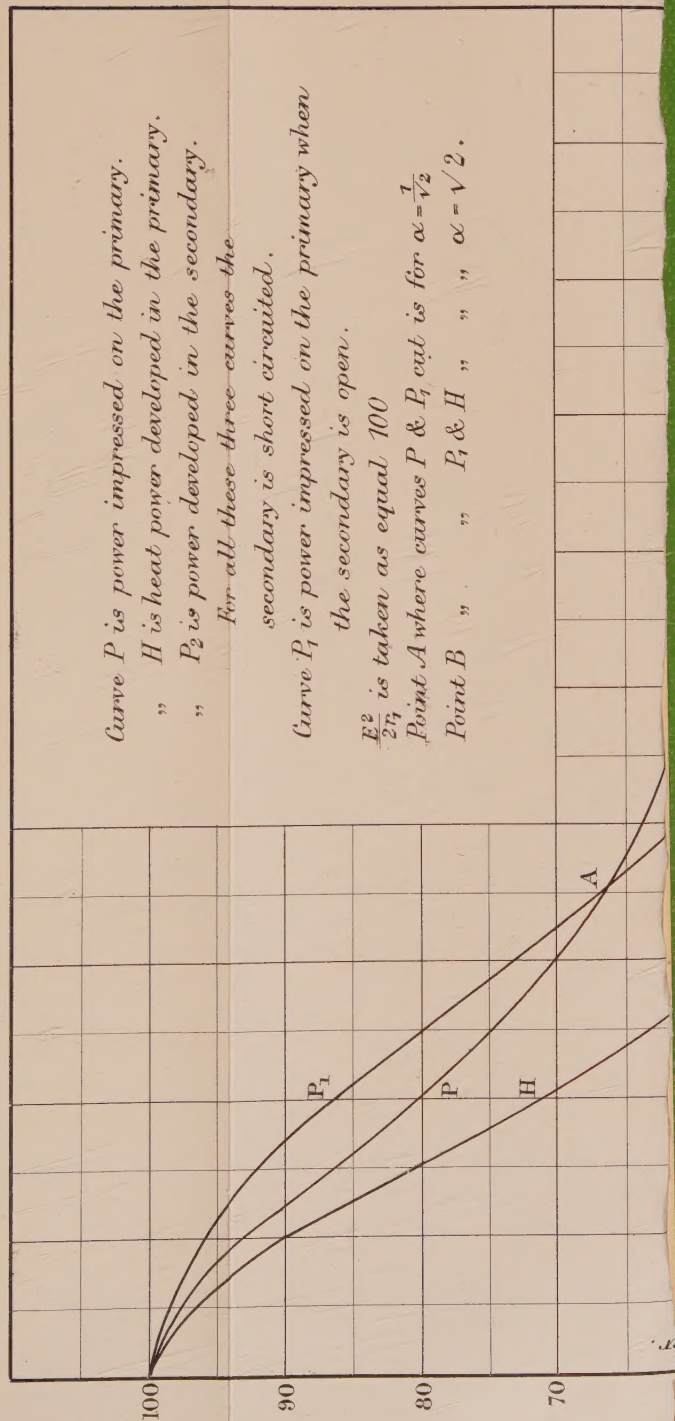 Curve P is power impressed on the primary.
„ H is heat power developed in the primary.
„ P₂ is power developed in the secondary.
For all these three curves the
secondary is short circuited.
Curve P₁ is power impressed on the primary when
the secondary is open.
E²/2r₁ is taken as equal 100
Point A where curves P & P₁ cut is for α = 1/√2
Point B „ „ P₁ & H „ „ „ α = √2.
100
90
80
70
P₁
P
H
A